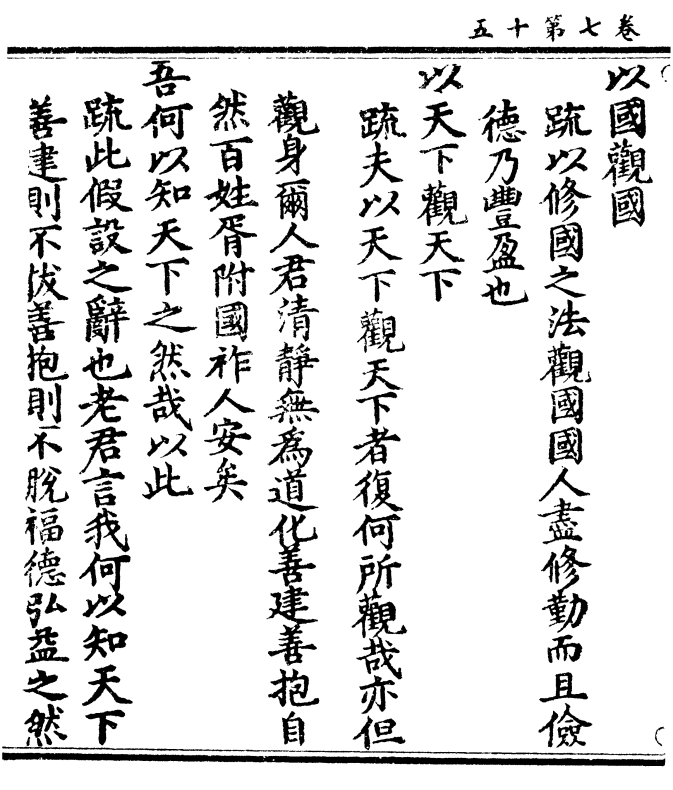 卷七第十五
以國觀國
疏以修國之法觀國國人盡修勤而且儉
德乃豐盈也
以天下觀天下
疏夫以天下觀天下者復何所觀哉亦但
觀身爾人君清靜無為道化善建善抱自
然百姓胥附國祚人安矣
吾何以知天下之然哉以此
疏此假設之辭也老君言我何以知天下
善建則不拔善抱則不脫福德弘益之然